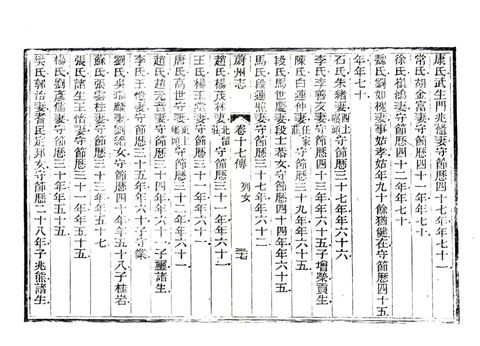 康氏武生門兆禧妻守節歷四十七年年七十一
常氏胡金富妻守節歷四十年年七十
徐氏崔鴻妻守節歷四十二年年七十
魏氏劉如槐妻事姑孝姑年九十餘猶健在守節歷四十五
年年七十
石氏朱緒妻守節歷三十七年年六十六
李氏李善友妻守節歷四十三年年六十五子增榮貢生
陳氏白連仲妻守節歷三十九年年六十五
段氏馬世慶妻段士恭女守節歷四十四年年六十五
馬氏段連照妻守節歷四十年年六十二
蔚州志
卷十七傳 列女
趙氏楊茂林妻北留莊守節歷三十一年年六十二
王氏楊玉棠妻守節歷三十一年年六十一
唐氏高世守妻守節歷三十二年年六十一
趙氏趙元音妻守節歷三十二年年六十一子璽諸生
李氏王燈妻守節歷三十五年年六十子守業
劉氏吳瑞麟妻劉錦女守節歷三十年年五十八子桂岩
蘇氏張雲桂妻守節歷三十年年五十七
張氏諸生王怡妻守節歷三十一年年五十五
楊氏劉彥儒妻守節歷三十年年五十五
裴氏郭治妻耆民定邦女守節歷二十八年子兆熊諸生